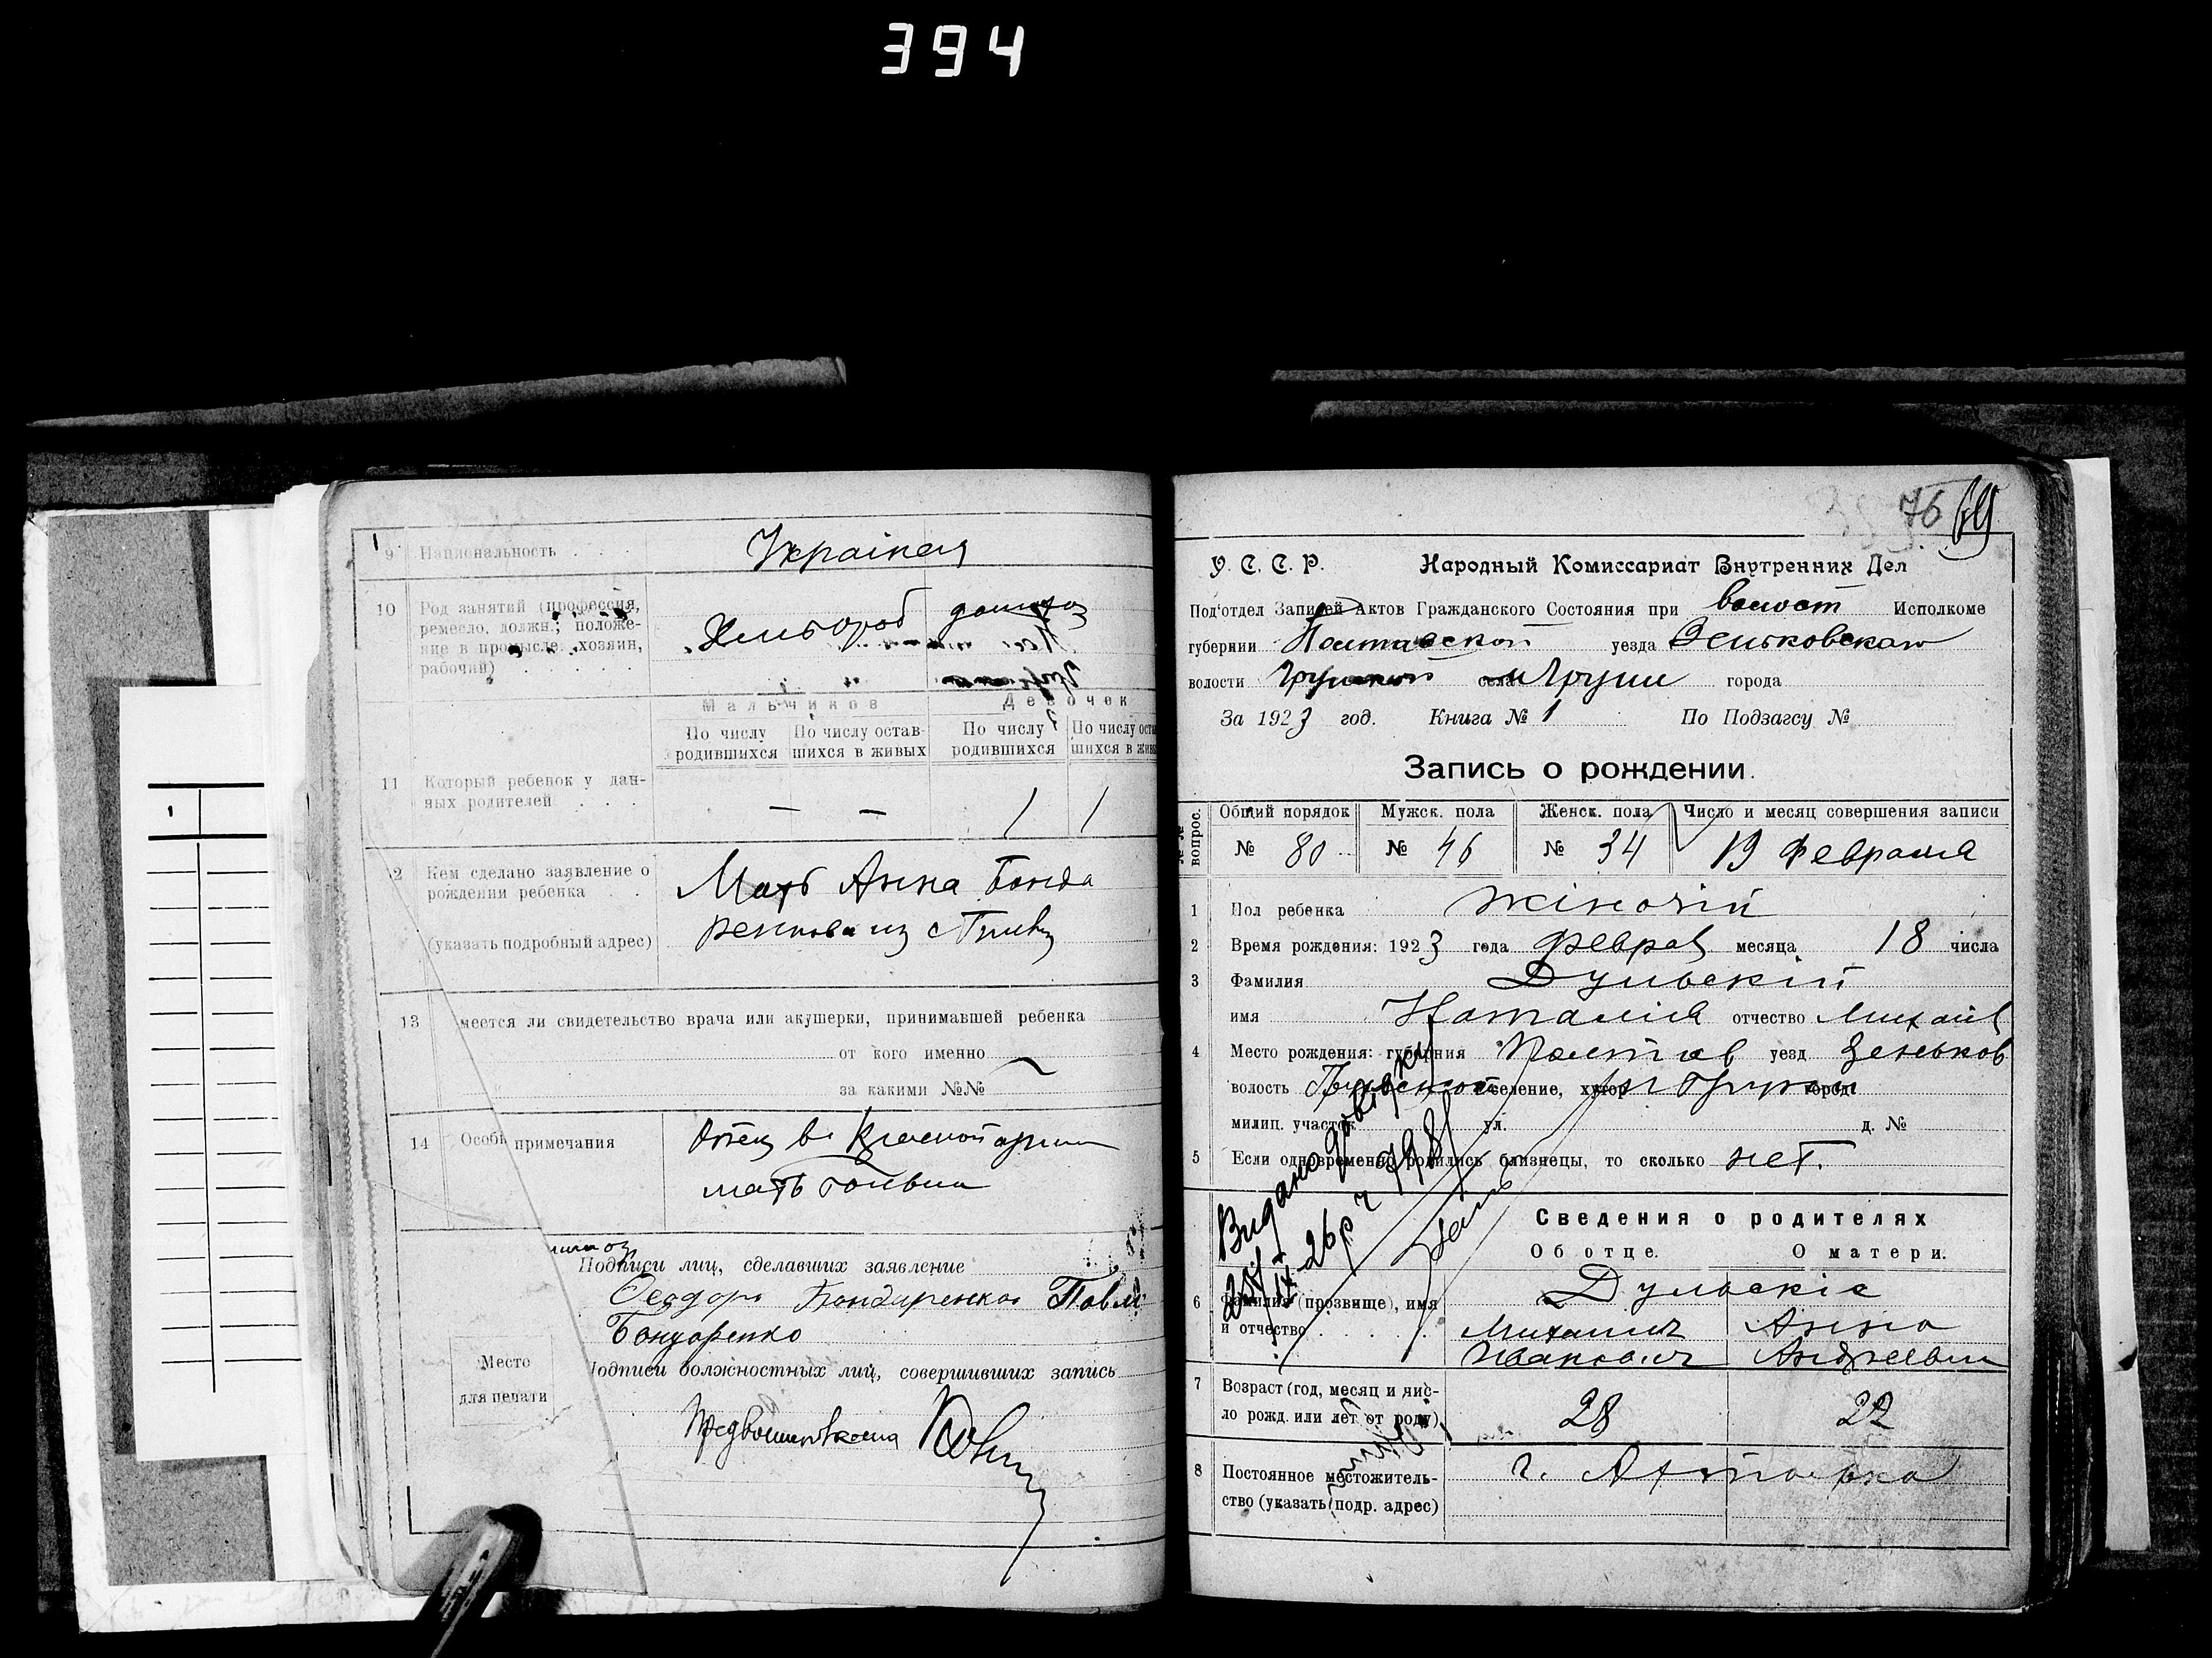 394
9 Национальность . . . Українец
10 Род занятий (профессия,
ремесло, должн.; положе-
ние в промысле: хозяин,
рабочий) . . . .
Хлибороб
Мальчиков Девочек
По числу родившихся По числу остав- шихся в живых По числу родившихся
11 Который ребенок у дан-
ных родителей . . . — — 1 1
Кем сделано заявление о
рождении ребенка . .
(указать подробный адрес)
Мать Анна Бонда
13 меется ли свидетельство врача или акушерки, принимавшей ребенка
от кого именно
за какими №№
14 примечания
Отец в Красной армии
мать
Подписи лиц, сделавших заявление
Феодор Бондаренко Павло
Бондаренко
Место
для печати
Подписи должностных лиц, совершивших запись
76 69
У. С. С. Р. Народный Комиссариат Внутренних Дел
Под'отдел Записей Актов Гражданского Состояния при волост Исполкоме
губернии Полтавской уезда Зеньковскаго
волости Грунской села м Груни города
За 1923 год. Книга № 1 По Подзагсу №
Запись о рождении.
№№ вопрос.
Общий порядок Мужск. пола Женск. пола Число и месяц совершения записи
№ 80 № 46 № 34 19 Февраля
1 Пол ребенка жіночій
2 Время рождения: 1923 года Феврал месяца 18 числа
3 Фамилия Дульскій
имя Наталія отчество Михайл
4 Место рождения: губерния Полтав уезд Зеньков
волость Грунской селение, хутор м Грунь город
милиц. участок ул. д. №
5 Если одновременно родились близнецы, то сколько нет.
Видано довідку
26р ч 798
Сведения о родителях
Об отце. О матери.
6 Фамилия (прозвище), имя Дульскіе
и отчество . . . . Михаил Анна
Иванович Андреевна
7 Возраст (год, месяц и чис-
ло рожд. или лет от роду) 28 22
8 Постоянное местожитель- г. Ахтырка
ство (указать подр. адрес)